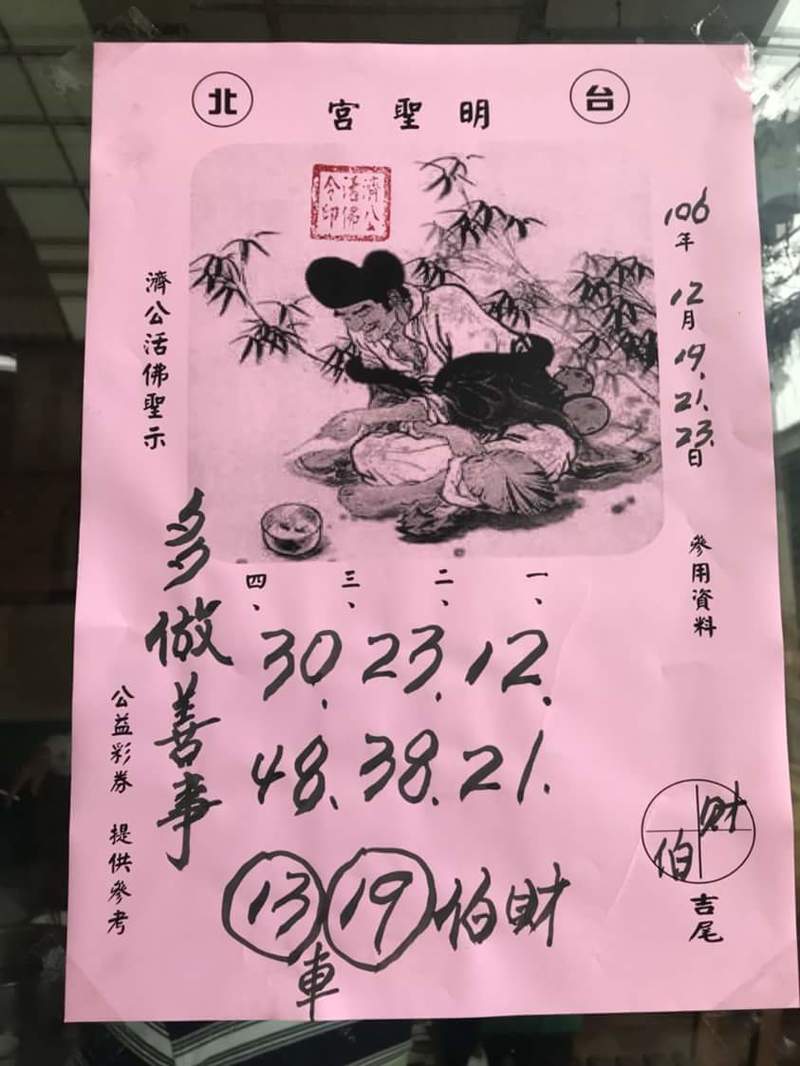 台北
明聖宮
濟公活佛令印
106年12月19.21.23.日
參用資料
濟公活佛聖示
一、二、三、四、
12. 23. 30.
21. 38. 48.
伯財 19 13
車
多做善事
公益彩券 提供參考
財伯
吉尾